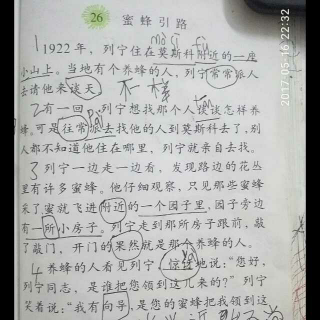 26 蜜蜂引路
mò fù
1 1922年，列宁住在莫斯科附近的一座
小山上。当地有个养蜂的人，列宁常常派人
去请他来谈天
不 样
2 有一回，列宁想找那个人谈谈怎样养
蜂，可是往常派去找他的人到莫斯科去了，别
人都不知道他住在哪里，列宁就亲自去找。
3 列宁一边走一边看，发现路边的花丛
里有许多蜜蜂。他仔细观察，只见那些蜜蜂
采了蜜就飞进附近的一个园子里，园子旁边
有一所小房子。列宁走到那所房子跟前，敲
了敲门，开门的果然就是那个养蜂的人。
4 养蜂的人看见列宁，惊讶地说：“您好，
列宁同志，是谁把您领到这儿来的？”列宁
笑着说：“我有向导，是您的蜜蜂把我领到这
2017.05.16 22:32